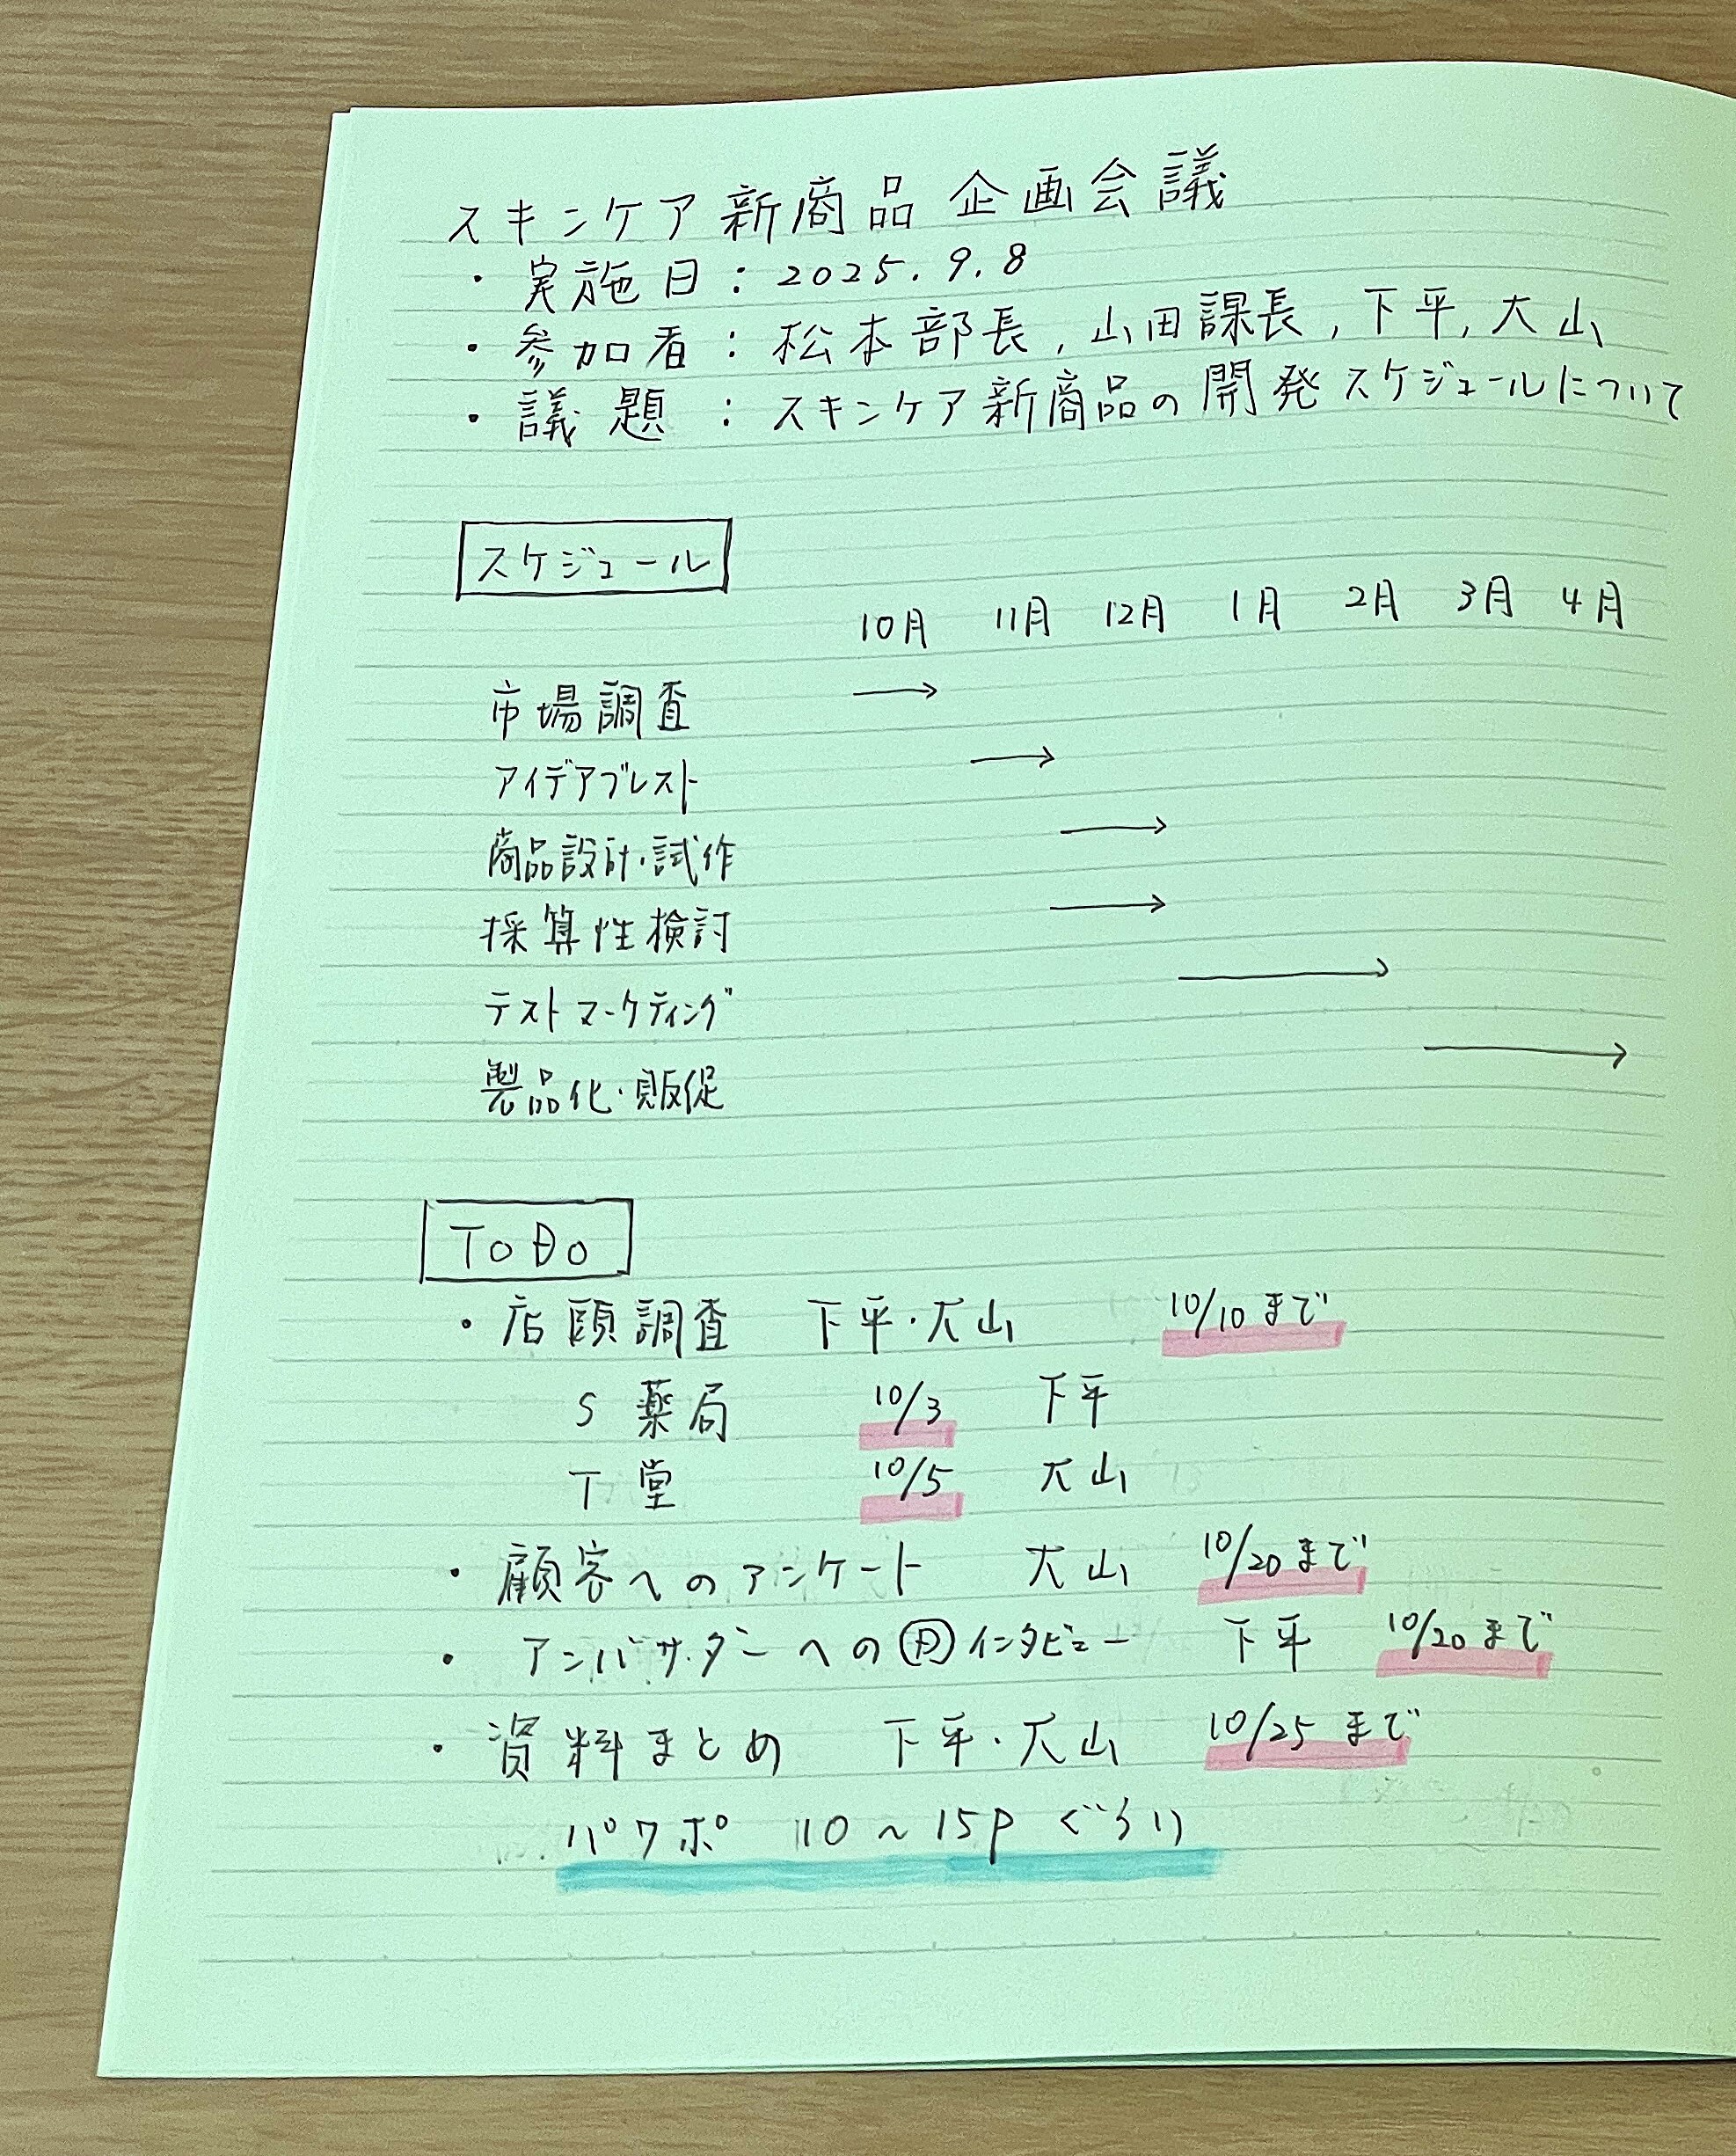 スキンケア新商品企画会議
・実施日：2025.9.8
・参加者：松本部長, 山田課長, 下平, 大山
・議題：スキンケア新商品の開発スケジュールについて
スケジュール
10月 11月 12月 1月 2月 3月 4月
市場調査 →
アイデアブレスト →
商品設計・試作 →
採算性検討 →
テストマーケティング →
製品化・販促 →
ToDo
・店頭調査 下平・大山 10/10まで
S薬局 10/3 下平
T堂 10/5 大山
・顧客へのアンケート 大山 10/20まで
・アンバサダーへの インタビュー 下平 10/20まで
・資料まとめ 下平・大山 10/25まで
パワポ 10～15Pぐらい